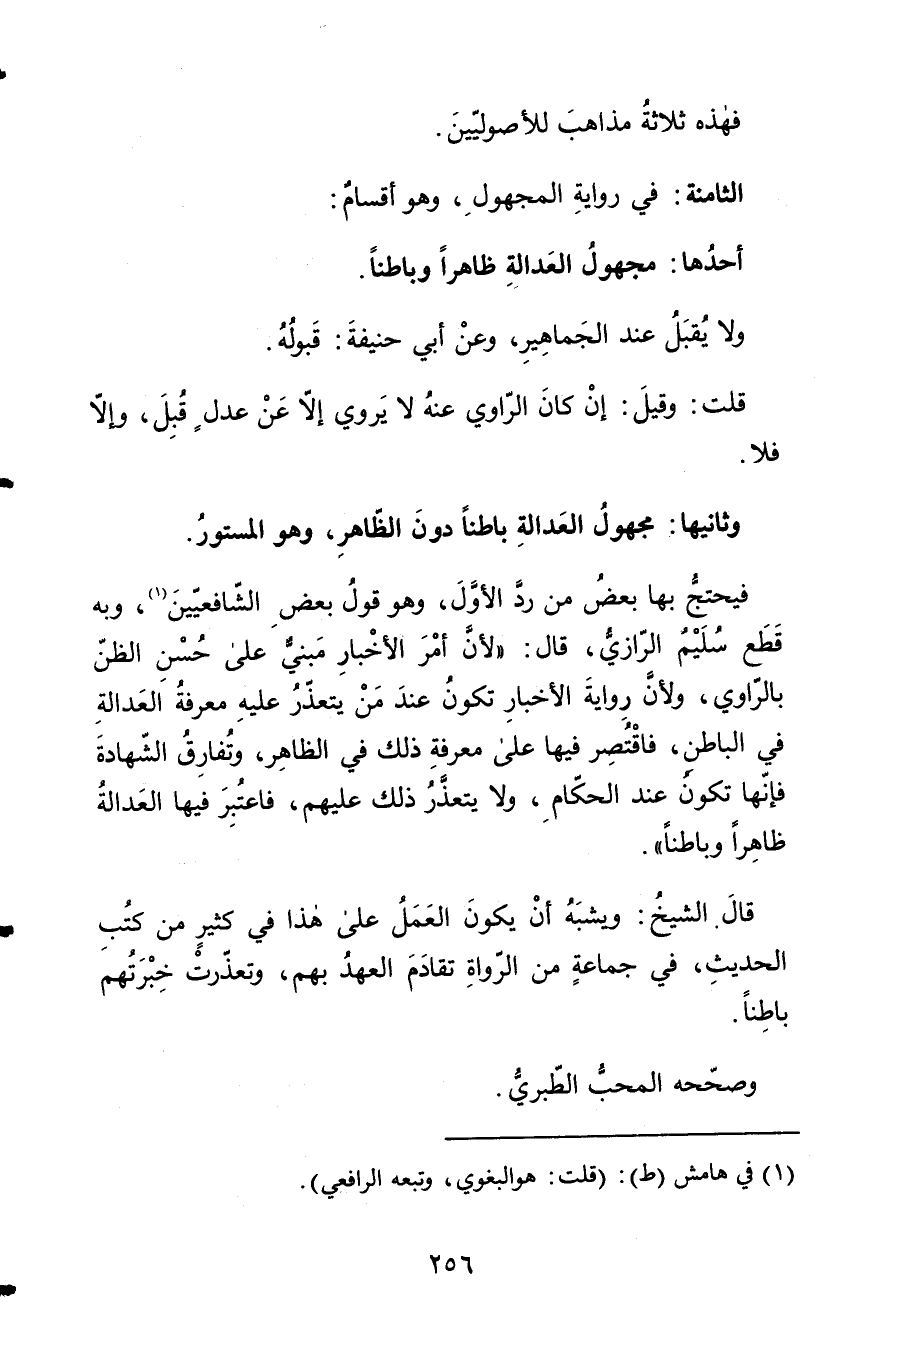 فهٰذه ثلاثةُ مذاهبَ للأصوليّينَ.
الثامنة: في روايةِ المجهولِ، وهو أقسامٌ:
أحدُها: مجهولُ العَدالةِ ظاهراً وباطناً.
ولا يُقبَلُ عند الجَماهيرِ، وعنْ أبي حنيفةَ: قَبولُهُ.
قلت: وقيلَ: إنْ كانَ الرّاوي عنهُ لا يَروي إلّا عَنْ عدلٍ قُبِلَ، وإلّا
فلا.
وثانيها: مجهولُ العَدالةِ باطناً دونَ الظّاهرِ، وهو المستورُ.
فيحتجُّ بها بعضُ من ردَّ الأوَّلَ، وهو قولُ بعضِ الشّافعيّينَ(١)، وبه
قَطَع سُلَيْمٌ الرّازيُّ، قال: «لأنَّ أمْرَ الأخْبارِ مَبنيٌّ علىٰ حُسْنِ الظنّ
بالرّاوي، ولأنَّ روايةَ الأخبارِ تكونُ عندَ مَنْ يتعذّرُ عليهِ معرفةُ العَدالةِ
في الباطنِ، فاقْتُصِر فيها علىٰ معرفةِ ذلك في الظاهرِ، وتُفارِقُ الشّهادةَ
فإنّها تكونُ عند الحكّامِ، ولا يتعذَّرُ ذلك عليهم، فاعتُبِرَ فيها العَدالةُ
ظاهِراً وباطناً».
قالَ الشيخُ: ويشبَهُ أنْ يكونَ العَمَلُ علىٰ هٰذا في كثيرٍ من كتُبِ
الحديثِ، في جماعةٍ من الرّواةِ تقادَمَ العهدُ بهم، وتعذّرتْ خِبْرَتُهم
باطِناً.
وصحّحه المحبُّ الطّبريُّ.
(١) في هامش (ط): (قلت: هوالبغوي، وتبعه الرافعي).
٢٥٦